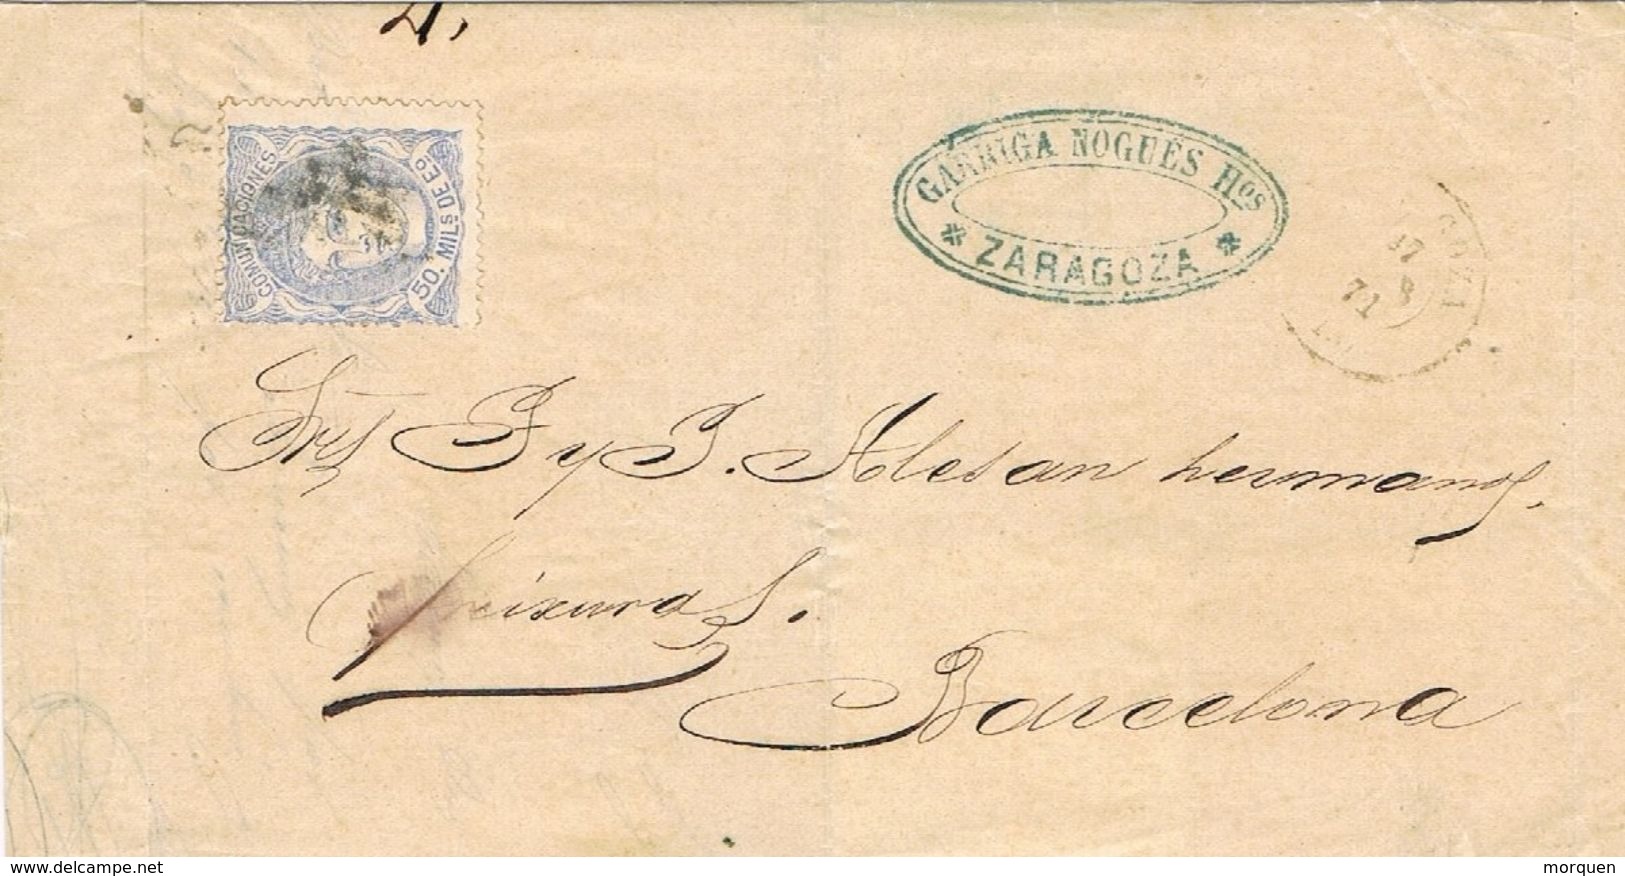 4,
COMUNICACIONES
50. MILS DE EO
GARRIGA NOGUÉS Hos
* ZARAGOZA *
17
71
Sres F y J. Alesan hermanos.
Barcelona
www.delcampe.net
morquen